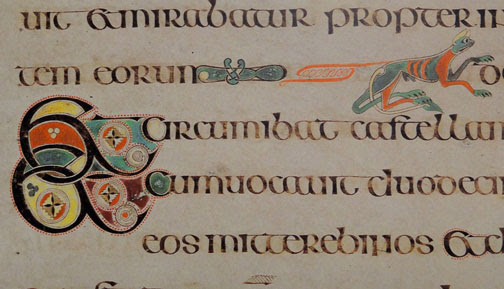 uit & mirabatur propter in
tem eorum
Circumibat castella in
Cumuocauit duodeci
eos mittere binos & d